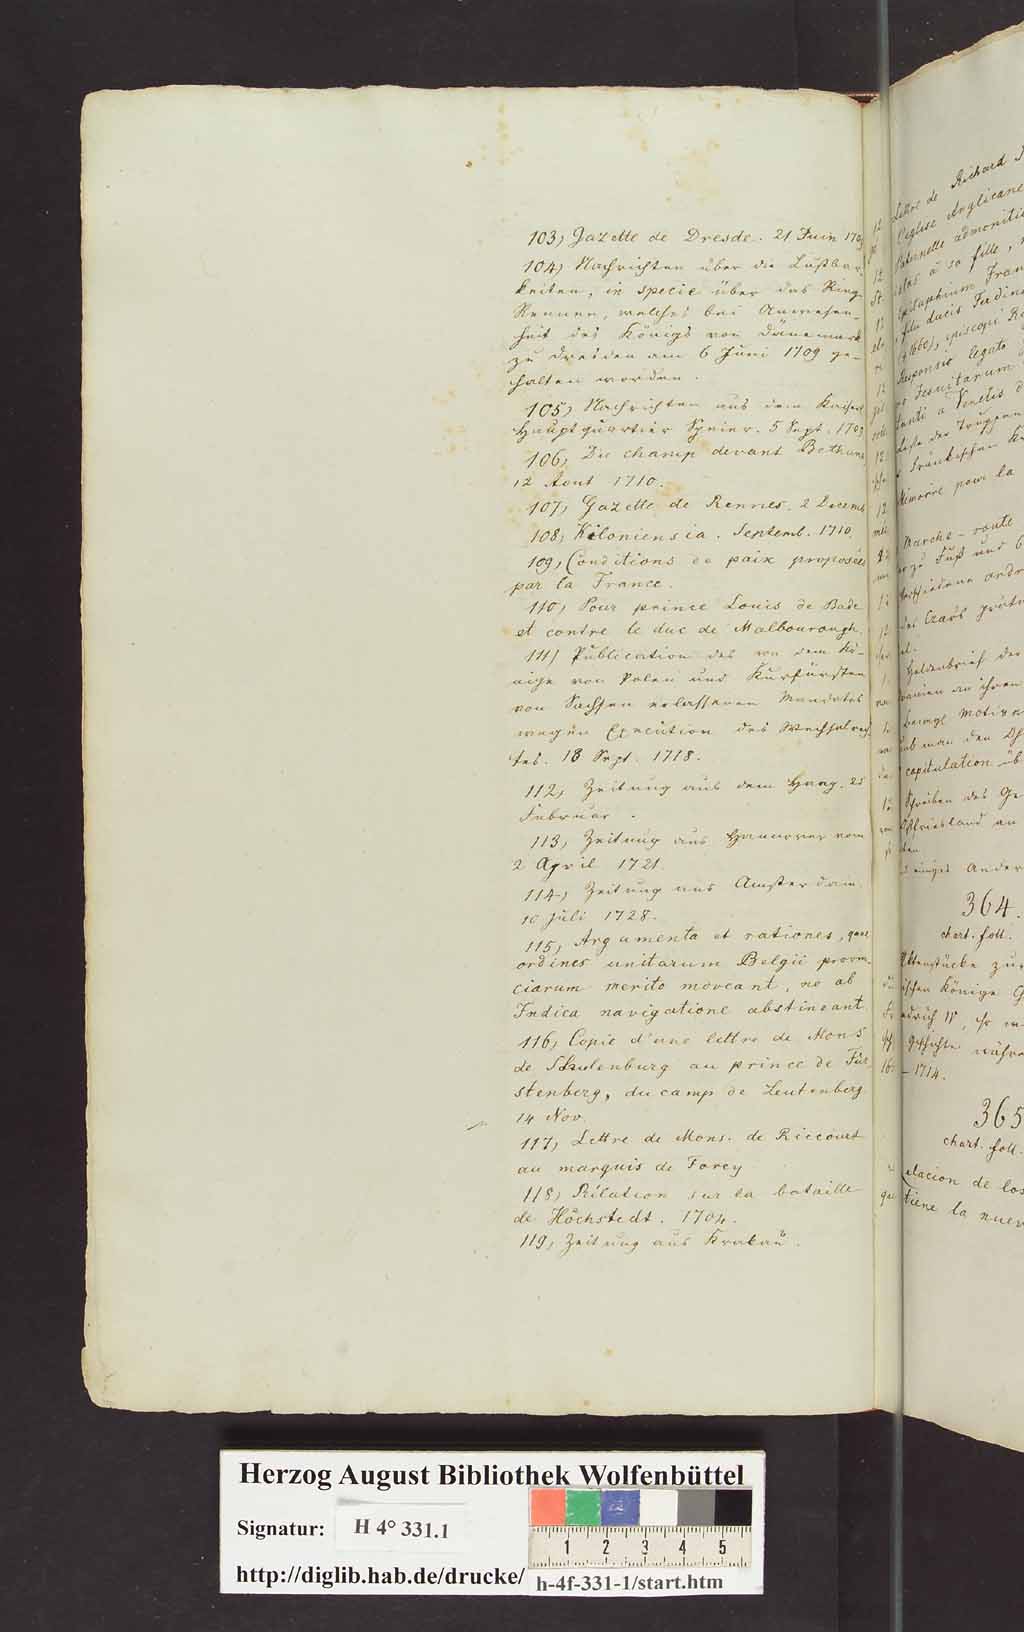 103, Gazette de Dresde. 21 Juin 170
104, Nachrichten über die Lustbar-
keiten, in specie über das Ring-
Rennen, welches bei Anwesen-
heit des Königs von Dänemark
zu Dresden am 6 Juni 1709 ge-
halten worden.
105, Nachrichten aus dem Kaiserl.
Hauptquartier Speier. 5 Sept. 1709
106, Du champ devant Bethune
12 Aout 1710.
107, Gazette de Rennes. 2 Decemb.
108, Kiloniensia. Septemb. 1710.
109, Conditions de paix proposées
par la France.
110, Pour prince Louis de Bade
et contre le duc de Malbourough.
111) Publication des von dem Kö-
nige von Polen und Kurfürsten
von Sachsen erlassenen Mandates
wegen Execution des Wechselrech-
tes. 18 Sept. 1718.
112, Zeitung aus dem Haag. 25
Februar.
113, Zeitung aus Hannover vom
2 April 1721.
114, Zeitung aus Amsterdam.
10 Juli 1728.
115, Argumenta et rationes, quae
ordines unitarum Belgii provin-
ciarum merito moveant, ne ab
Indica navigatione abstineant
116, Copie d'une lettre de Mons.
de Schulenburg au prince de Für-
stenberg, du camp de Leutenberg
14 Nov.
117, Lettre de Mons. de Riccourt
au marquis de Torcy
118, Rélation sur la bataille
de Höchstedt. 1704.
119, Zeitung aus Krakau.
Lettre de Richard
l'eglise Anglicane
Paternelle admonitio
à sa fille,
Epitaphium Fran
filii ducis Ferdina
(† 1660), episcopi R
Responsio legato
Jesuitarum
a Venetis
Liste der Truppen
Fränkischen K
Mémoire pour la
Marche-route
zu Fuß und
des Czars
Heldenbrief der
an ihren
Motive
ob man den
capitulation üb
Schreiben des Ge
Ostfriesland an
einiges Ander
364.
chart. foll.
Aktenstücke zur
schen Könige G
Geschichte währe
– 1714.
365
chart. foll.
elacion de los
tiene la nuev
Herzog August Bibliothek Wolfenbüttel
Signatur: H 4° 331.1
1 2 3 4 5
http://diglib.hab.de/drucke/ h-4f-331-1/start.htm